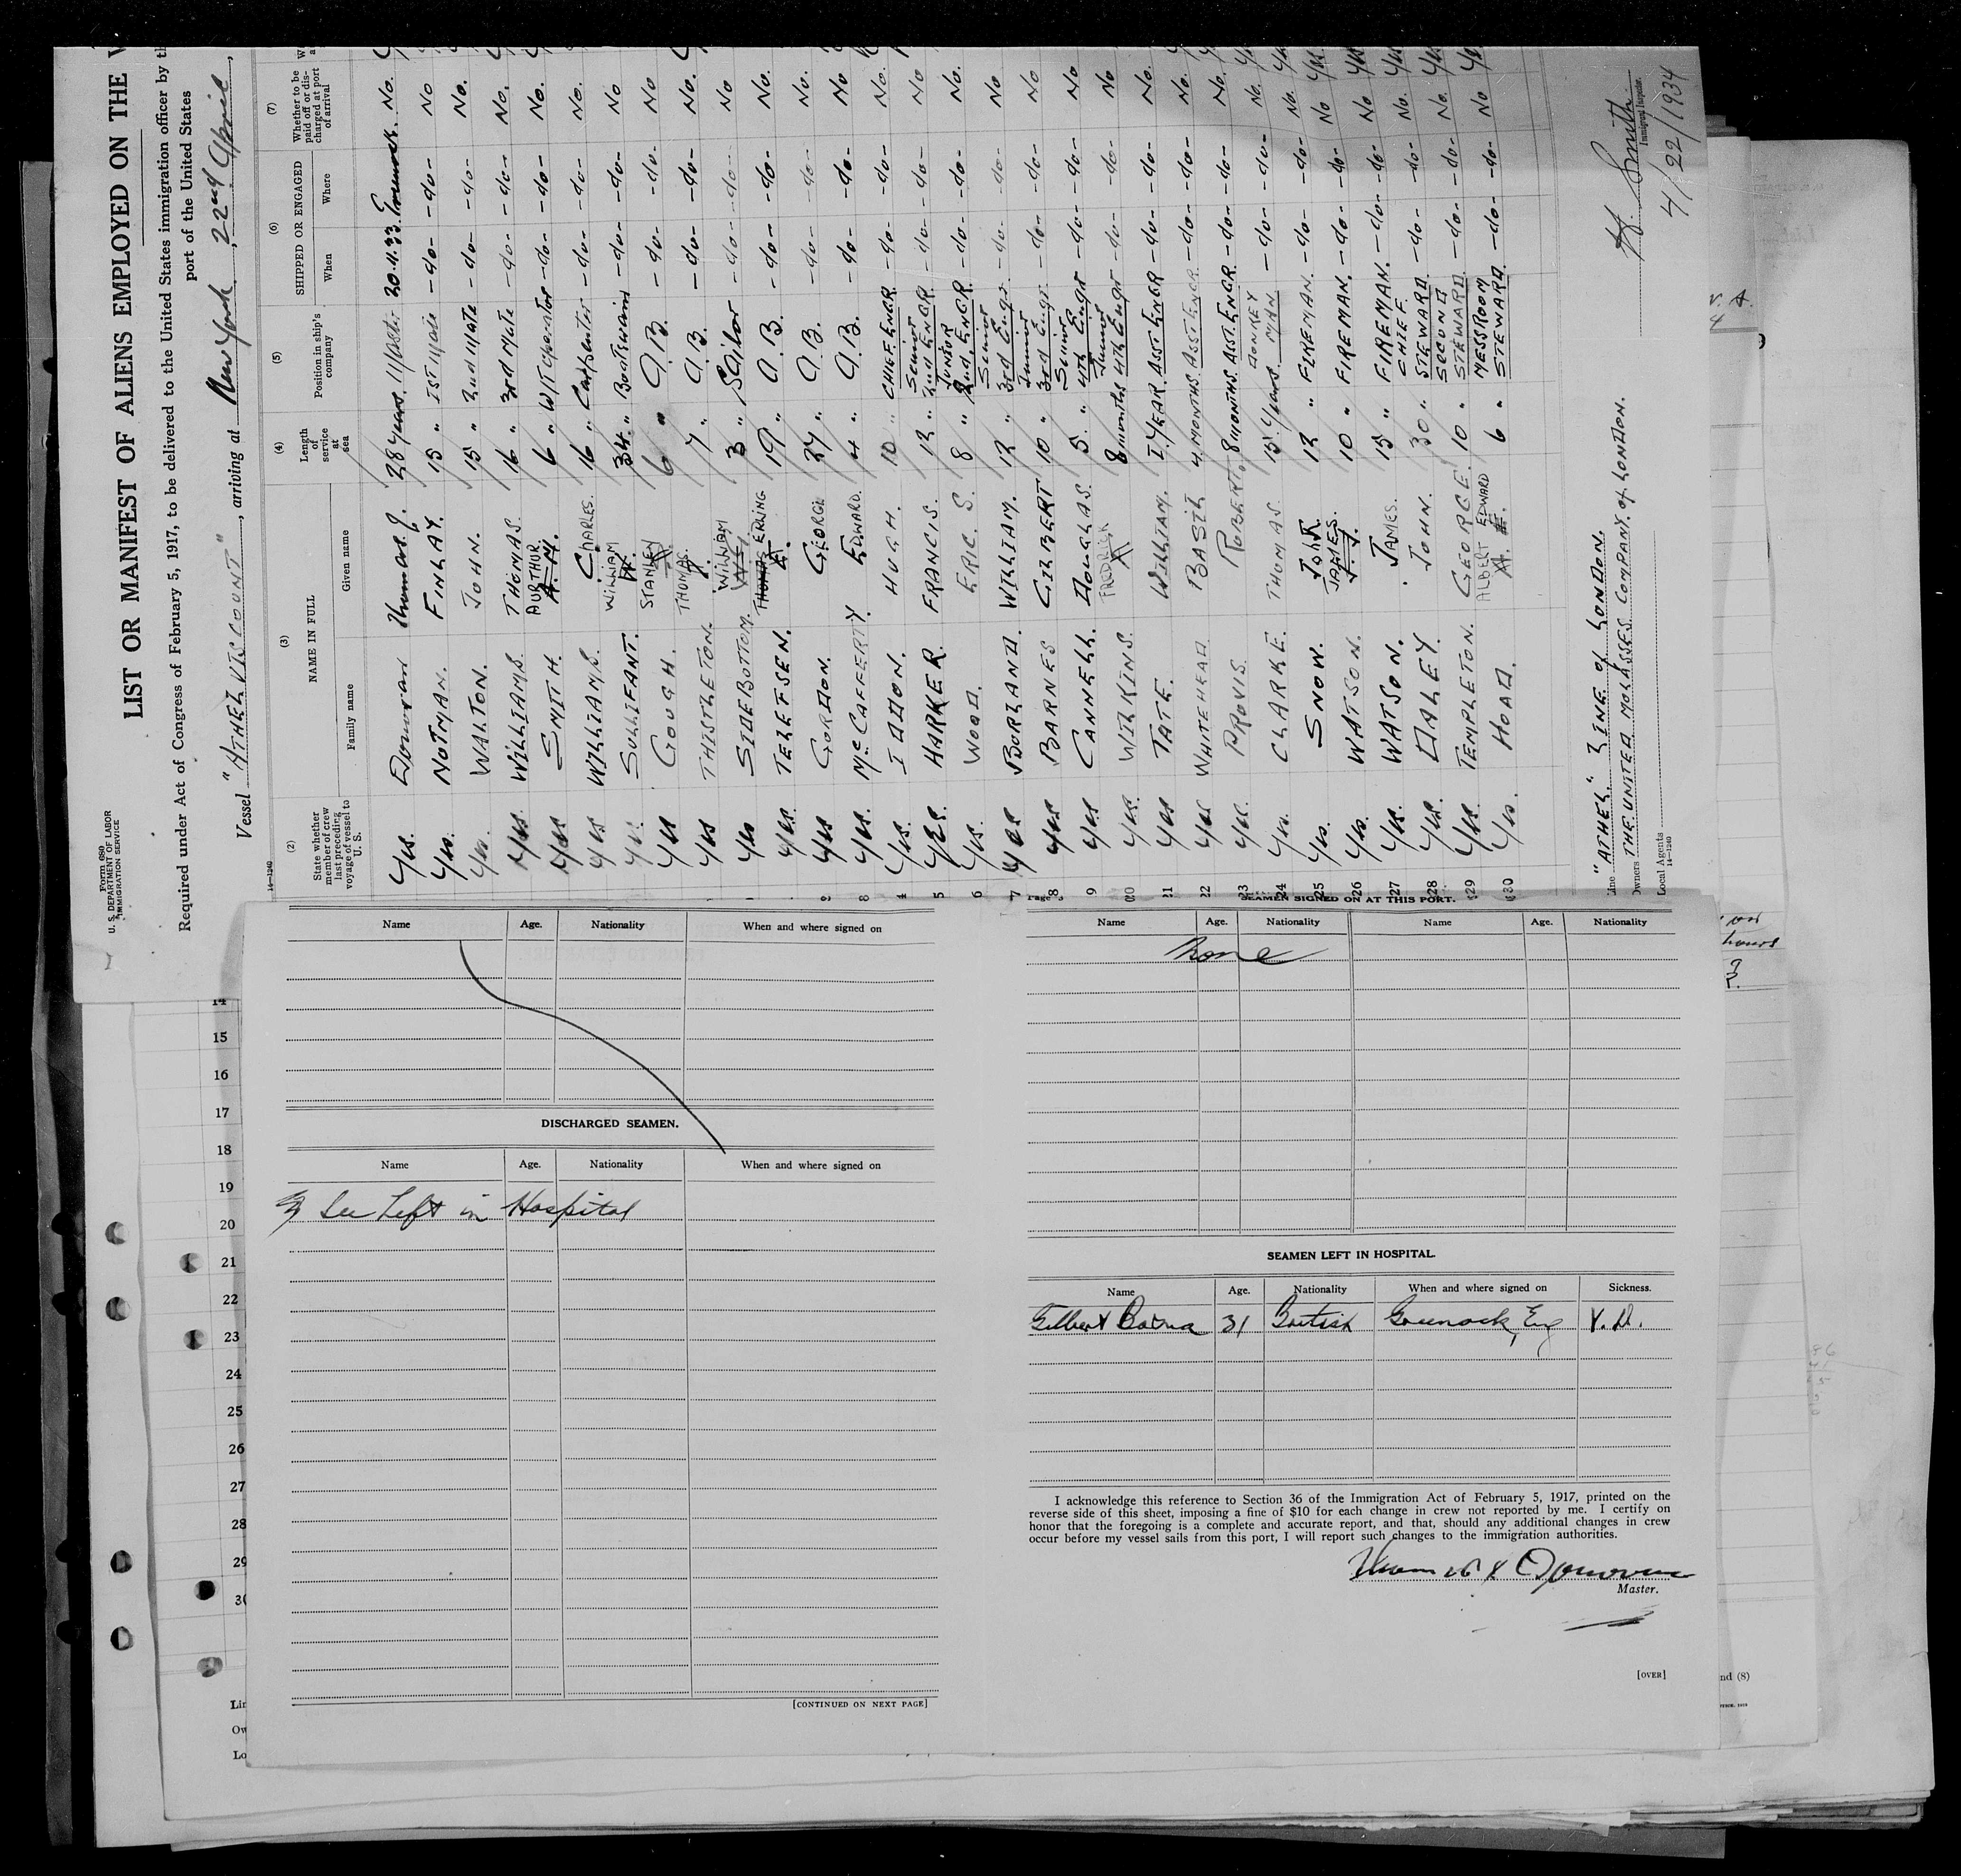 Form 680
U. S. DEPARTMENT OF LABOR
IMMIGRATION SERVICE
LIST OR MANIFEST OF ALIENS EMPLOYED ON THE
Required under Act of Congress of February 5, 1917, to be delivered to the United States immigration officer by th
port of the United States
Vessel "ATHEL VISCOUNT", arriving at New York, 22nd April,
14—1240
(2) (3) (4) (5) (6) (7)
State whether member of crew last preceding voyage of vessel to U. S.
NAME IN FULL
Family name Given name
Length of service at sea
Position in ship's company
SHIPPED OR ENGAGED
When Where
Whether to be paid off or discharged at port of arrival
Yes. Donovan Thomas J. 28 Years. Master 20.11.33. No.
Yes. NOTMAN. FINLAY. 15 " 1ST Mate -do- -do- No
Yes. WALTON. JOHN. 15 " 2nd MATE -do- -do- No.
Yes WILLIAMS. THOMAS. 16 " 3rd Mate -do- -do- No.
Yes SMITH. AURTHUR A.M. 6 " W/T Operator -do- -do- No.
Yes WILLIAMS. C. CHARLES. 16 " Carpenter -do- -do- No.
Yes. SULLIFANT. WILLIAM W. 34 " Boatswain -do- -do- No
Yes GOUGH. STANLEY 6 " A.B. -do- -do- No
Yes THISTLETON. THOMAS. 7 " A.B. -do- -do- No.
Yes SIDEBOTTOM. WILLIAM 3 " Sailor -do- -do- No
Yes. TELEFSEN. THOMAS ERLING 19 " A.B. -do- -do- No.
Yes GORDON. GEORGE 27 " A.B. -do- -do- No.
Yes. McCAFFERTY. EDWARD. 4 " A.B. -do- -do- No
Yes. IDDON. HUGH. 10 " CHIEF ENGR -do- -do- No.
5 Yes. HARKER. FRANCIS. 12 " Senior 2nd ENGR. -do- -do- No
6 Yes. WOOD. ERIC S. 8 " JUNIOR 2nd. ENGR -do- -do- No.
7 Yes BORLAND. WILLIAM. 12 " Senior 3rd Engr. -do- -do- No
8 Yes BARNES GILBERT 10 " Junior 3rd Engr. -do- -do- No
9 Yes CANNELL. DOUGLAS. 5 " Senior 4th Engr -do- -do- No
20 Yes. WILKINS. FREDRICK 8 months Junior 4th Engr -do- -do- No
21 Yes TATE. WILLIAM. 1 YEAR. ASST ENGR -do- -do- No.
22 Yes WHITEHEAD BASIL 4 MONTHS. ASST ENGR -do- -do- No.
23 Yes. PROVIS. ROBERT. 8 MONTHS. ASST. ENGR. -do- -do- No.
24 Yes. CLARKE. THOMAS. 15 Years. DONKEY MAN -do- -do- No.
25 Yes. SNOW. JOHN. 12 " FIREMAN. -do- -do- No.
26 Yes. WATSON. JAMES. 10 " FIREMAN. -do- -do- No
27 Yes. WATSON. JAMES. 15 " FIREMAN. -do- -do- No
28 Yes. DALEY. JOHN. 30 " CHIEF STEWARD -do- -do- No.
29 Yes. TEMPLETON. GEORGE. 10 " SECOND STEWARD. -do- -do- No.
30 Yes. HOAD. ALBERT EDWARD 6 " MESSROOM STEWARD. -do- -do- No
Line "ATHEL" LINE of LONDON.
Owners THE UNITED MOLASSES COMPANY. of LONDON.
Local Agents
14—1240
Smith
Immigrant Inspector.
4/22/1934
Name Age. Nationality When and where signed on
DISCHARGED SEAMEN.
Name Age. Nationality When and where signed on
See Left in Hospital
[CONTINUED ON NEXT PAGE]
SEAMEN SIGNED ON AT THIS PORT.
Name Age. Nationality Name Age. Nationality
None
SEAMEN LEFT IN HOSPITAL.
Name Age. Nationality When and where signed on Sickness.
Gilbert Barnes 31 British Greenock, Eng V.D.
I acknowledge this reference to Section 36 of the Immigration Act of February 5, 1917, printed on the
reverse side of this sheet, imposing a fine of $10 for each change in crew not reported by me. I certify on
honor that the foregoing is a complete and accurate report, and that, should any additional changes in crew
occur before my vessel sails from this port, I will report such changes to the immigration authorities.
Thomas J Donovan
Master.
[OVER]
14
15
16
17
18
19
20
21
22
23
24
25
26
27
28
29
30
Lin
Ow
Lo
hours
nd (8)